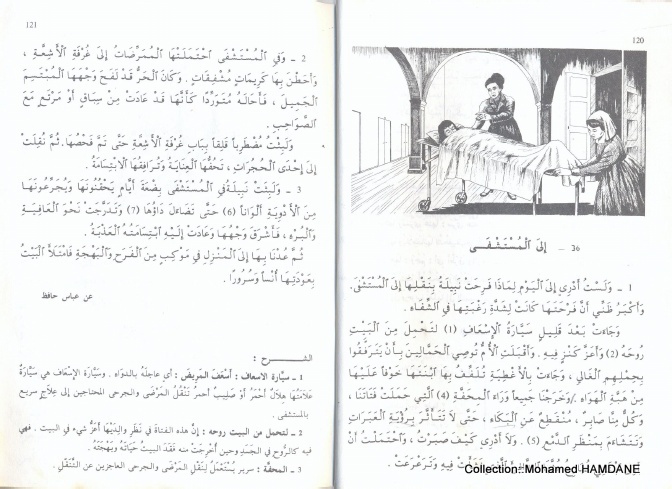 120
36 – إِلَى الْمُسْتَشْفَى
1 – وَلَسْتُ أَدْرِي إِلَى الْيَوْمِ لِمَاذَا فَرِحَتْ نَبِيلَةُ بِنَقْلِهَا إِلَى الْمُسْتَشْفَى،
وَأَكْبَرُ ظَنِّي أَنَّ فَرْحَتَهَا كَانَتْ لِشِدَّةِ رَغْبَتِهَا فِي الشِّفَاءِ .
وَجَاءَتْ بَعْدَ قَلِيلٍ سَيَّارَةُ الْإِسْعَافِ (1) لِتَحْمِلَ مِنَ الْبَيْتِ
رُوحَهُ (2) وَأَعَزَّ كَنْزٍ فِيهِ . وَأَقْبَلَتِ الْأُمُّ تُوصِي الْحَمَّالِينَ بِأَنْ يَتَرَفَّقُوا
بِحِمْلِهِمِ الْغَالِي ، وَجَاءَتْ بِالْأَغْطِيَةِ تُلَفِّفُ بِهَا ابْنَتَهَا خَوْفاً عَلَيْهَا
مِنْ هَبَّةِ الْهَوَاءِ . وَخَرَجْنَا جَمِيعاً وَرَاءَ الْمِحَفَّةِ (4) الَّتِي حَمَلَتْ فَتَاتَنَا ،
وَكُلٌّ مِنَّا صَابِرٌ ، مُنْقَطِعٌ عَنِ الْبُكَاءِ ، حَتَّى لَا تَتَأَثَّرَ بِرُؤْيَةِ الْعَبَرَاتِ
وَتَتَشَاءَمَ بِمَنْظَرِ الدَّمْعِ (5) . وَلَا أَدْرِي كَيْفَ صَبَرْتُ ، وَاحْتَمَلْتُ أَنْ
فِيهِ وَتَرَعْرَعَتْ .
121
2 – وَفِي الْمُسْتَشْفَى احْتَمَلَتْهَا الْمُمَرِّضَاتُ إِلَى غُرْفَةِ الْأَشِعَّةِ ،
وَأَحَطْنَ بِهَا كَرِيمَاتٍ مُشْفِقَاتٍ . وَكَانَ الْحَرُّ قَدْ لَفَحَ وَجْهَهَا الْمُبْتَسِمَ
الْجَمِيلَ ، فَأَحَالَهُ مُتَوَرِّداً كَأَنَّهَا قَدْ عَادَتْ مِنْ سِبَاقٍ أَوْ مَرْتَعٍ مَعَ
الصَّوَاحِبِ .
وَلَبِثْتُ مُضْطَرِباً قَلِقاً بِبَابِ غُرْفَةِ الْأَشِعَّةِ حَتَّى تَمَّ فَحْصُهَا . ثُمَّ نُقِلَتْ
إِلَى إِحْدَى الْحُجُرَاتِ ، تَحُفُّهَا الْعِنَايَةُ وَتُرَافِقُهَا الْابْتِسَامَةُ .
3 – وَلَبِثَتْ نَبِيلَةُ فِي الْمُسْتَشْفَى بِضْعَةَ أَيَّامٍ يَحْقُنُونَهَا وَيُجَرِّعُونَهَا
مِنَ الْأَدْوِيَةِ أَلْوَاناً (6) حَتَّى تَضَاءَلَ دَاؤُهَا (7) وَتَدَرَّجَتْ نَحْوَ الْعَافِيَةِ
وَالْبُرْءِ ، فَأَشْرَقَ وَجْهُهَا وَعَادَتْ إِلَيْهِ ابْتِسَامَتُهُ الْعَذْبَةُ .
ثُمَّ عُدْنَا بِهَا إِلَى الْمَنْزِلِ فِي مَوْكِبٍ مِنَ الْفَرَحِ وَالْبَهْجَةِ فَامْتَلَأَ الْبَيْتُ
بِعَوْدَتِهَا أُنْساً وَسُرُوراً .
عن عباس حافظ
الشـــرح :
1 – سيارة الاسعاف : أَسْعَفَ المَرِيضَ : أي عاجلهُ بالدواء . وسيَّارة الإسعاف هي سَيَّارَةٌ
عَلَامَتُهَا هِلَالٌ أحمرُ أوْ صَلِيبٌ أحمرُ تَنْقُلُ المَرْضَى والجرحى المحتاجين إلى عِلَاجٍ سريع
بالمستشفى .
2 – لتحمل من البيت روحه : إنَّ هذه الفتاةَ في نَظَرِ والِدَيْهَا أعَزُّ شيء في البيت . فهي
فيه كالرُّوح في الجَسَدِ وحين أُخْرِجَتْ منه فَقَدَ البيتُ حَيَاتَهُ وبَهْجَتَهُ .
3 – المحفّة : سرير يُسْتَعْمَلُ لِنَقْلِ المَرْضَى والجرحى العاجزين عن التَّنَقُّلِ .
Collection::Mohamed HAMDANE